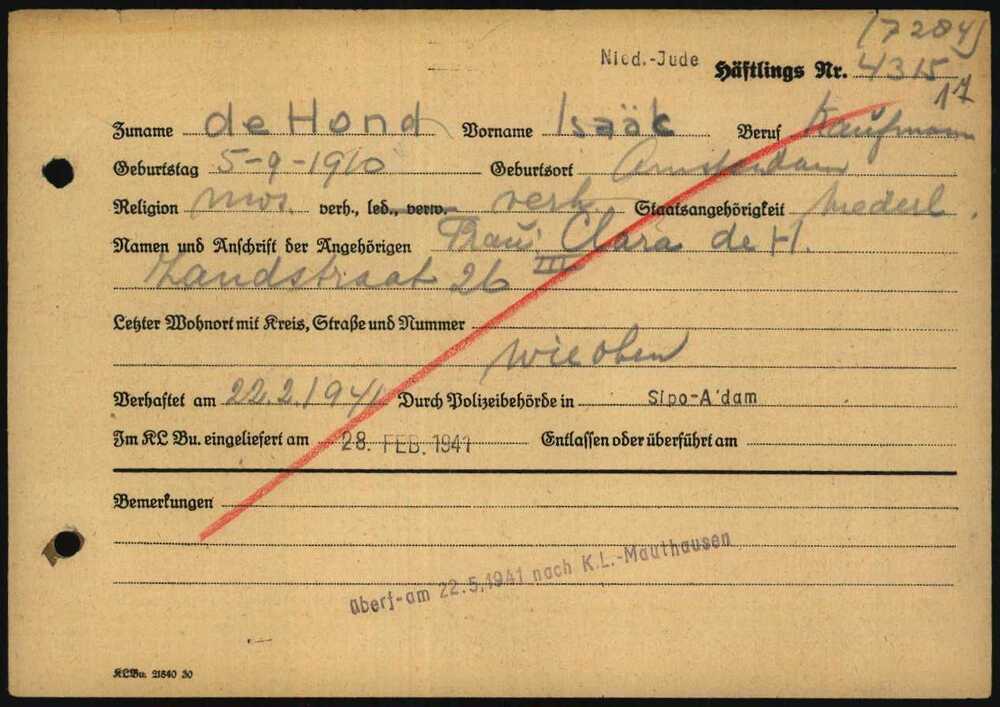 [7284]
Nied.-Jude Häftlings Nr. 4315
17
Zuname de Hond Vorname Isaäk Beruf Kaufmann
Geburtstag 5-9-1910 Geburtsort Amsterdam
Religion mos. verh., led., verw. verh. Staatsangehörigkeit Niederl.
Namen und Anschrift der Angehörigen Frau: Clara de H.
Zandstraat 26 III
Letzter Wohnort mit Kreis, Straße und Nummer
wie oben
Verhaftet am 22.2.1941 Durch Polizeibehörde in Sipo-A'dam
Im KL Bu. eingeliefert am 28. FEB. 1941 Entlassen oder überführt am
Bemerkungen
überf-am 22.5.1941 nach K.L.-Mauthausen
KLBu. 21840 30